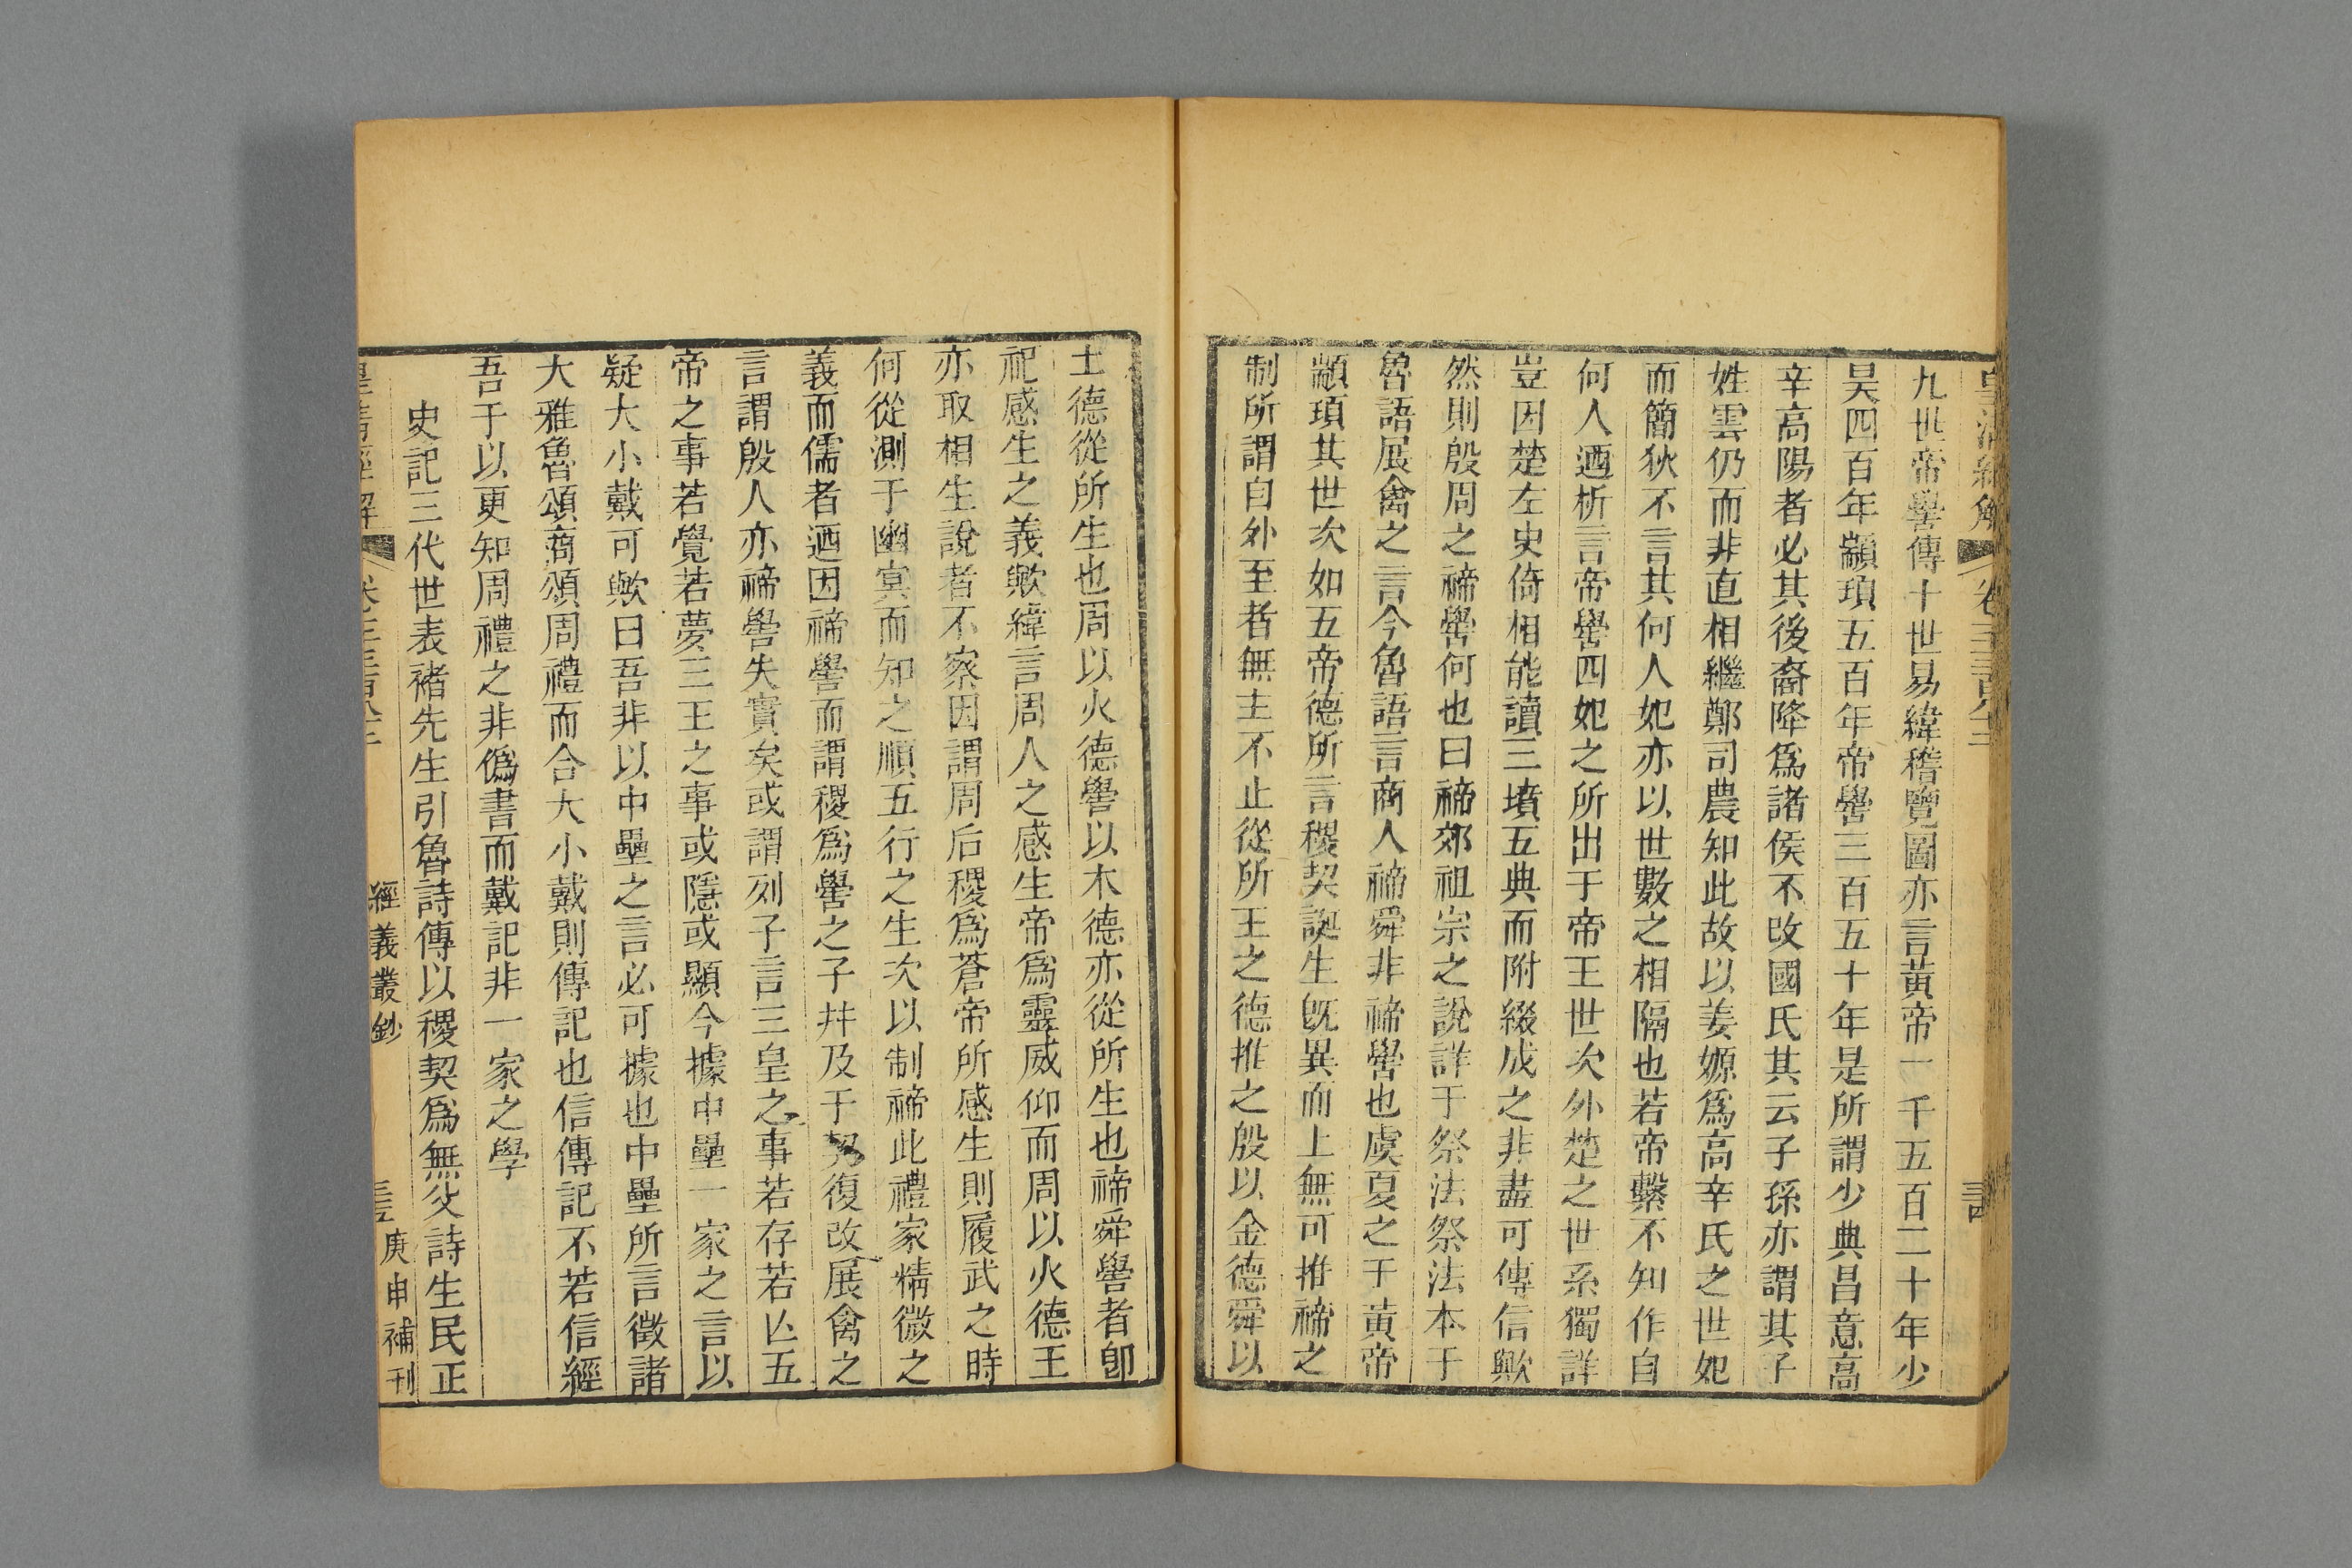 九世帝嚳傳十世易緯稽覽圖亦言黃帝一千五百二十年少
昊四百年顓頊五百年帝嚳三百五十年是所謂少典昌意高
辛高陽者必其後裔降爲諸侯不改國氏其云子孫亦謂其子
姓雲仍而非直相繼鄭司農知此故以姜嫄爲高辛氏之世妃
而簡狄不言其何人妃亦以世數之相隔也若帝繫不知作自
何人迺析言帝嚳四妃之所出于帝王世次外楚之世系獨詳
豈因楚左史倚相能讀三墳五典而附綴成之非盡可傳信歟
然則殷周之禘嚳何也曰禘郊祖宗之說詳于祭法祭法本于
魯語展禽之言今魯語言商人禘舜非禘嚳也虞夏之于黃帝
顓頊其世次如五帝德所言稷契誕生旣異而上無可推禘之
制所謂自外至者無主不止從所王之德推之殷以金德舜以
土德從所生也周以火德嚳以木德亦從所生也禘舜嚳者卽
祀感生之義歟緯言周人之感生帝爲靈威仰而周以火德王
亦取相生說者不察因謂周后稷爲蒼帝所感生則履武之時
何從測于幽冥而知之順五行之生次以制禘此禮家精微之
義而儒者迺因禘嚳而謂稷爲嚳之子幷及于契復改展禽之
言謂殷人亦禘嚳失實矣或謂列子言三皇之事若存若亾五
帝之事若覺若夢三王之事或隱或顯今據中壘一家之言以
疑大小戴可歟曰吾非以中壘之言必可據也中壘所言徵諸
大雅魯頌商頌周禮而合大小戴則傳記也信傳記不若信經
吾于以更知周禮之非僞書而戴記非一家之學
史記三代世表褚先生引魯詩傳以稷契爲無父詩生民正
經義叢鈔
庚申補刊